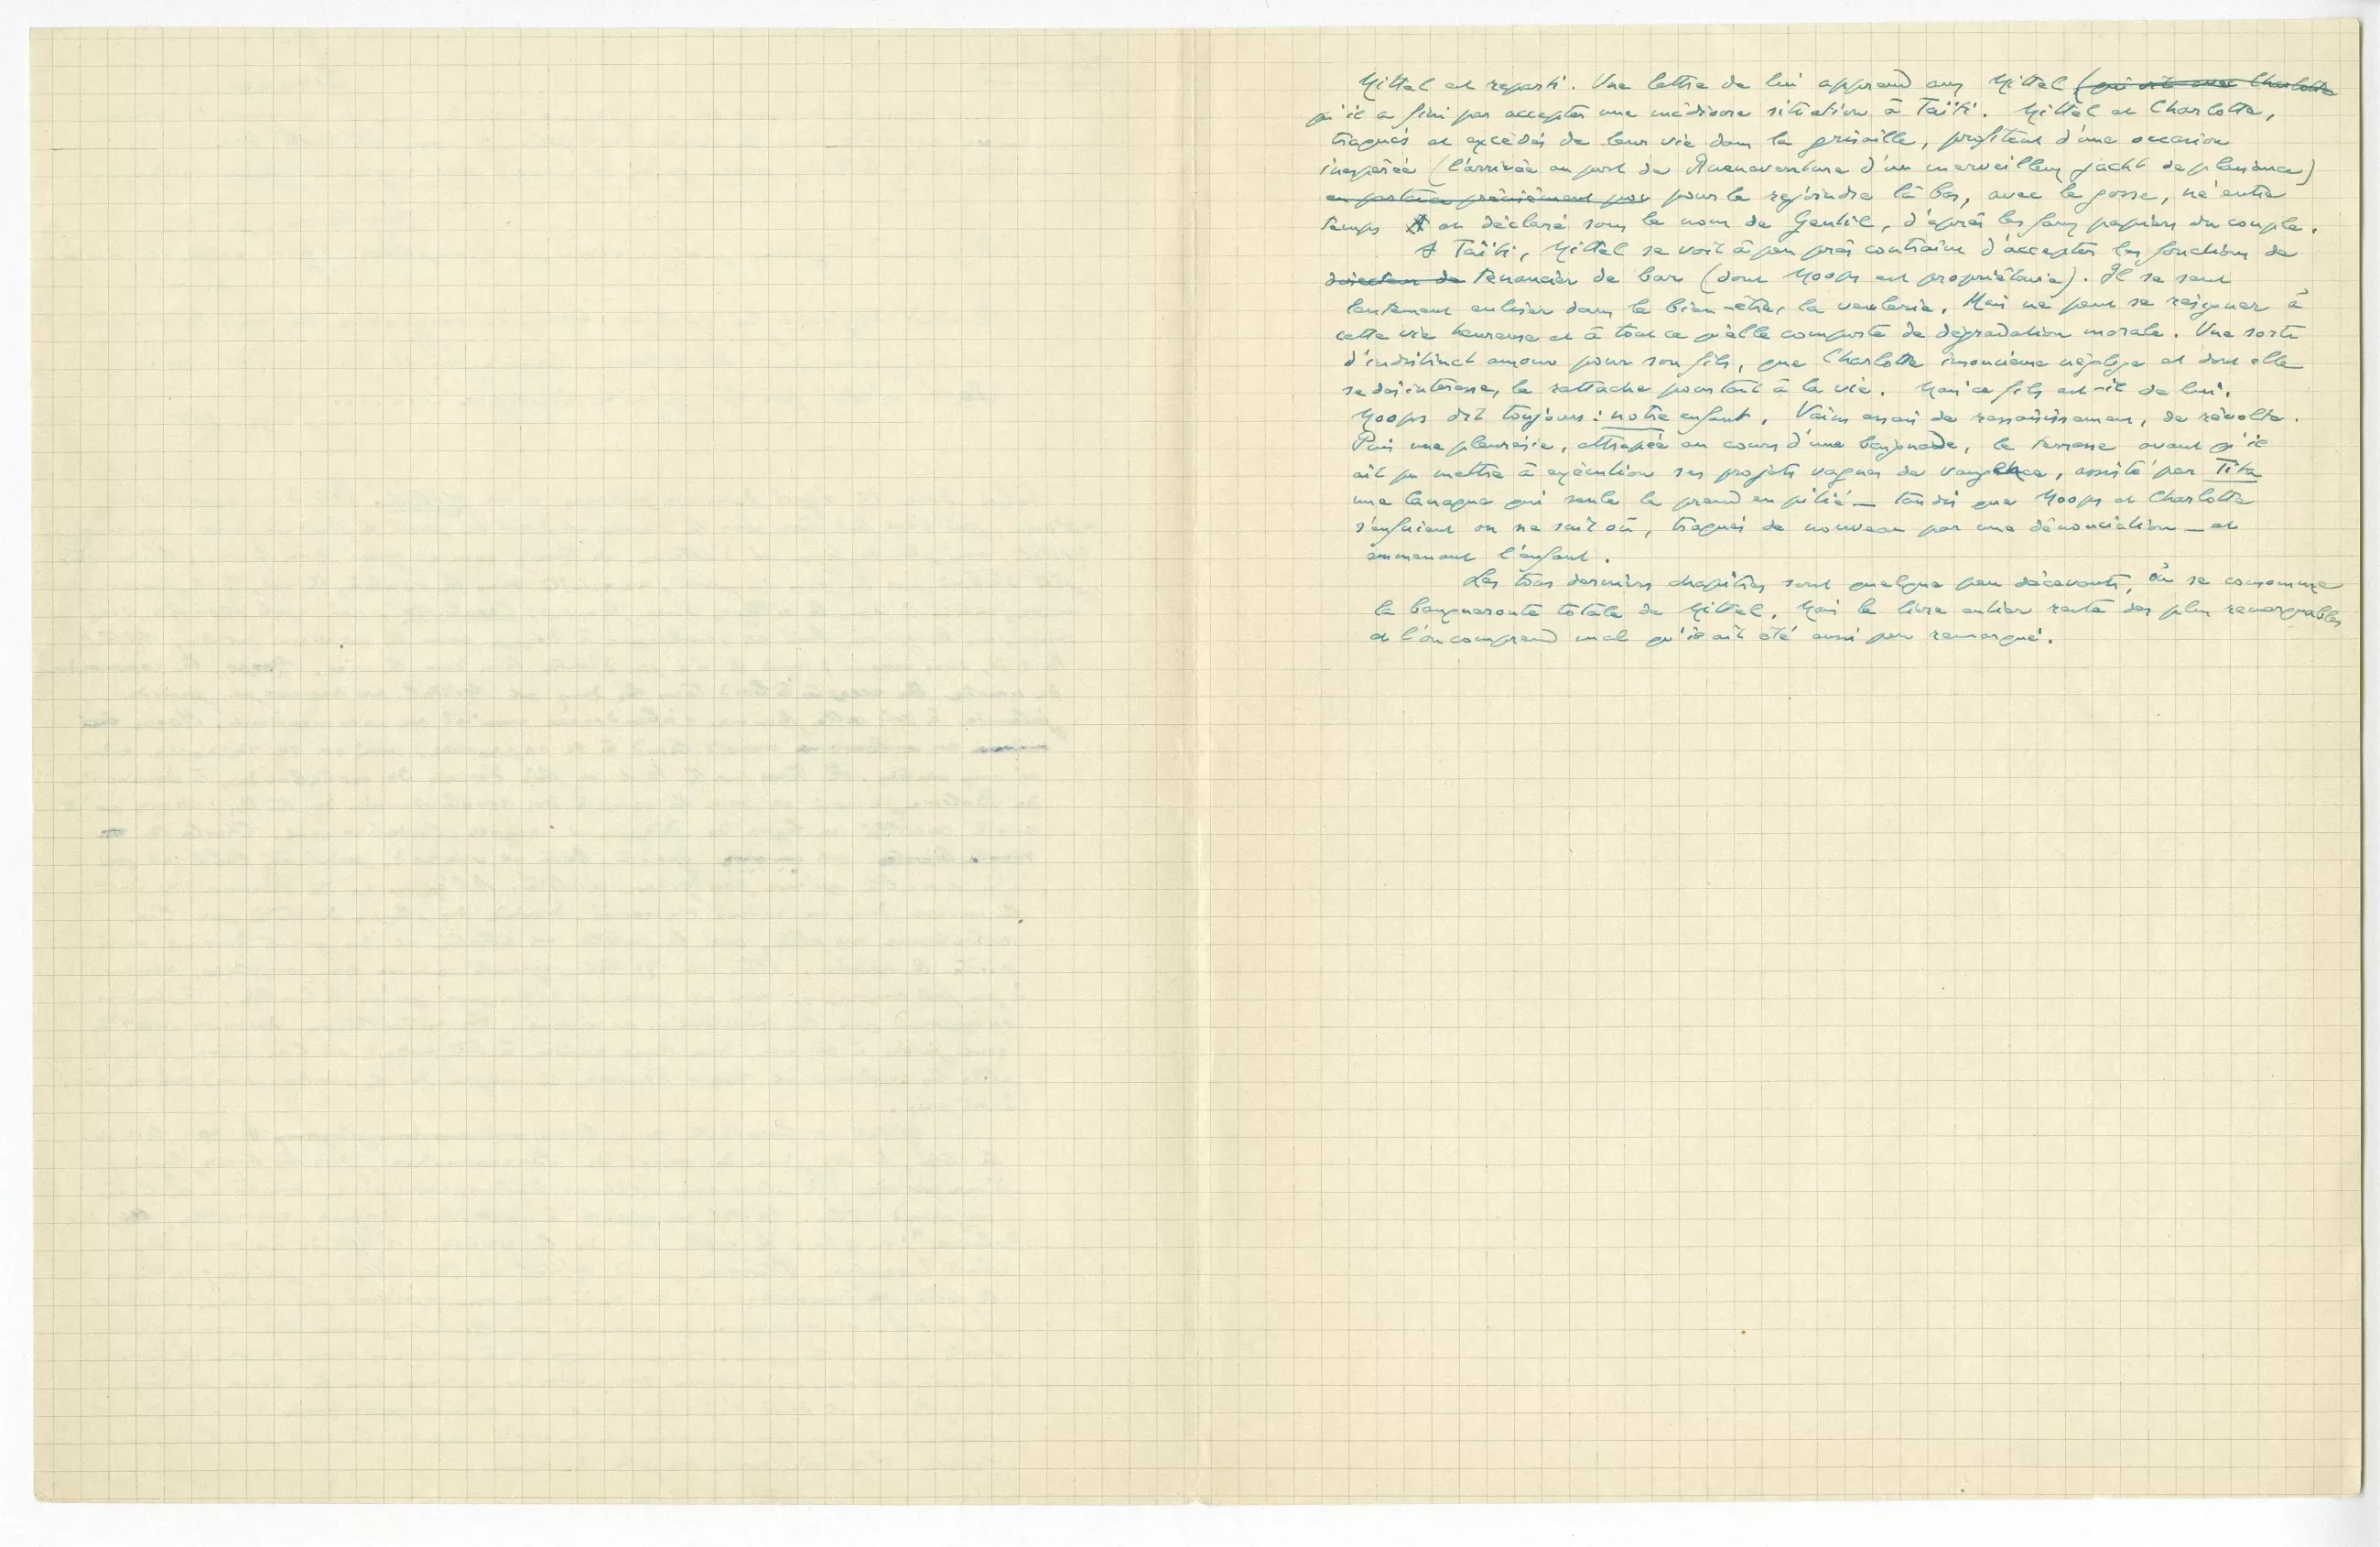 Mittel est reparti. Une lettre de lui apprend aux Mittel (qui vit avec Charlotte
qu'il a fini par accepter une médiocre situation à Taïti. Mittel et Charlotte,
traqués et excédés de leur vie dans la grisaille, profitent d'une occasion
inespérée (l'arrivée au port de Buenaventura d'un merveilleux yacht de plaisance)
pour le rejoindre là bas, avec le gosse, né entre
temps et déclaré sous le nom de Gentil, d'après les faux papiers du couple.
A Taïti, Mittel se voit à peu près contraint d'accepter les fonctions de
directeur de tenancier de bar (dont Moops est propriétaire). Il se sent
lentement enliser dans le bien-être, la veulerie. Mais ne peut se résigner à
cette vie heureuse et à tout ce qu'elle comporte de dégradation morale. Une sorte
d'indistinct amour pour son fils, que Charlotte insouciante néglige et dont elle
se désintéresse, le rattache pourtant à la vie. Mais ce fils est-il de lui.
Moops dit toujours : notre enfant. Vains essais de ressaisissement, de révolte.
Puis une pleurésie, attrapée au cours d'une baignade, le terrasse avant qu'il
ait pu mettre à exécution ses projets vagues de vengeance, assisté par Tita
une canaque qui seule le prend en pitié — tandis que Moops et Charlotte
s'enfuient on ne sait où, traqués de nouveau par une dénonciation — et
emmenant l'enfant.
Les tous derniers chapitres sont quelque peu décevants, où se consomme
la banqueroute totale de Mittel. Mais le livre entier reste des plus remarquables
et l'on comprend mal qu'il ait été aussi peu remarqué.